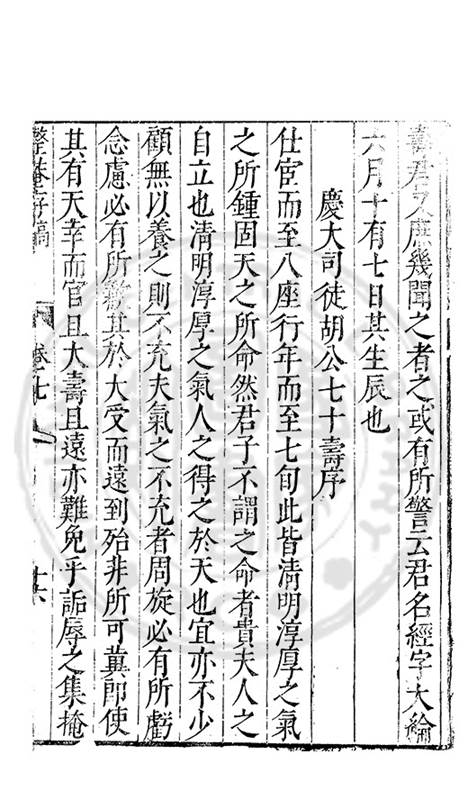 壽君又庶幾聞之者之或有所警云君名經字大綸
六月十有七日其生辰也
慶大司徒胡公七十壽序
仕宦而至八座行年而至七旬此皆清明淳厚之氣
之所鍾固天之所命然君子不謂之命者貴夫人之
自立也清明淳厚之氣人之得之於天也宜亦不少
顧無以養之則不充夫氣之不充者周旋必有所虧
念慮必有所歉其於大受而遠到殆非所可冀即使
其有天幸而官且大壽且遠亦難免乎詬辱之集掩
存稿 卷七 十六